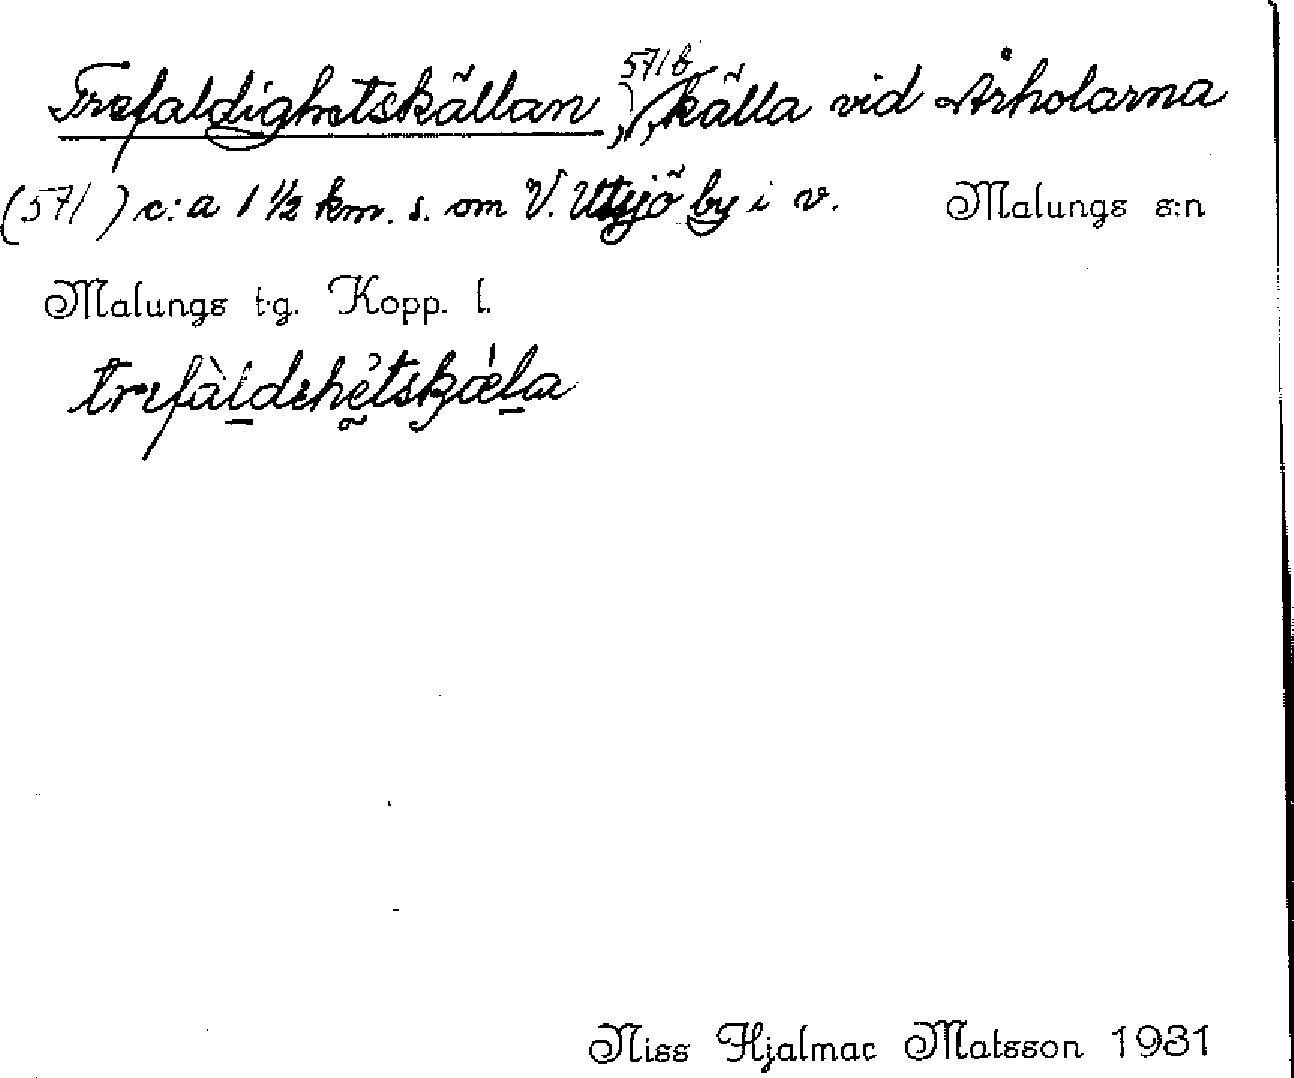 Trefaldighetskällan, 571b källa vid Årholarna
(571) c:a 1 ½ km. s. om V. Utsjö by i v. Malungs s:n
Malungs t.g. Kopp. l.
Niss Hjalmar Matsson 1931